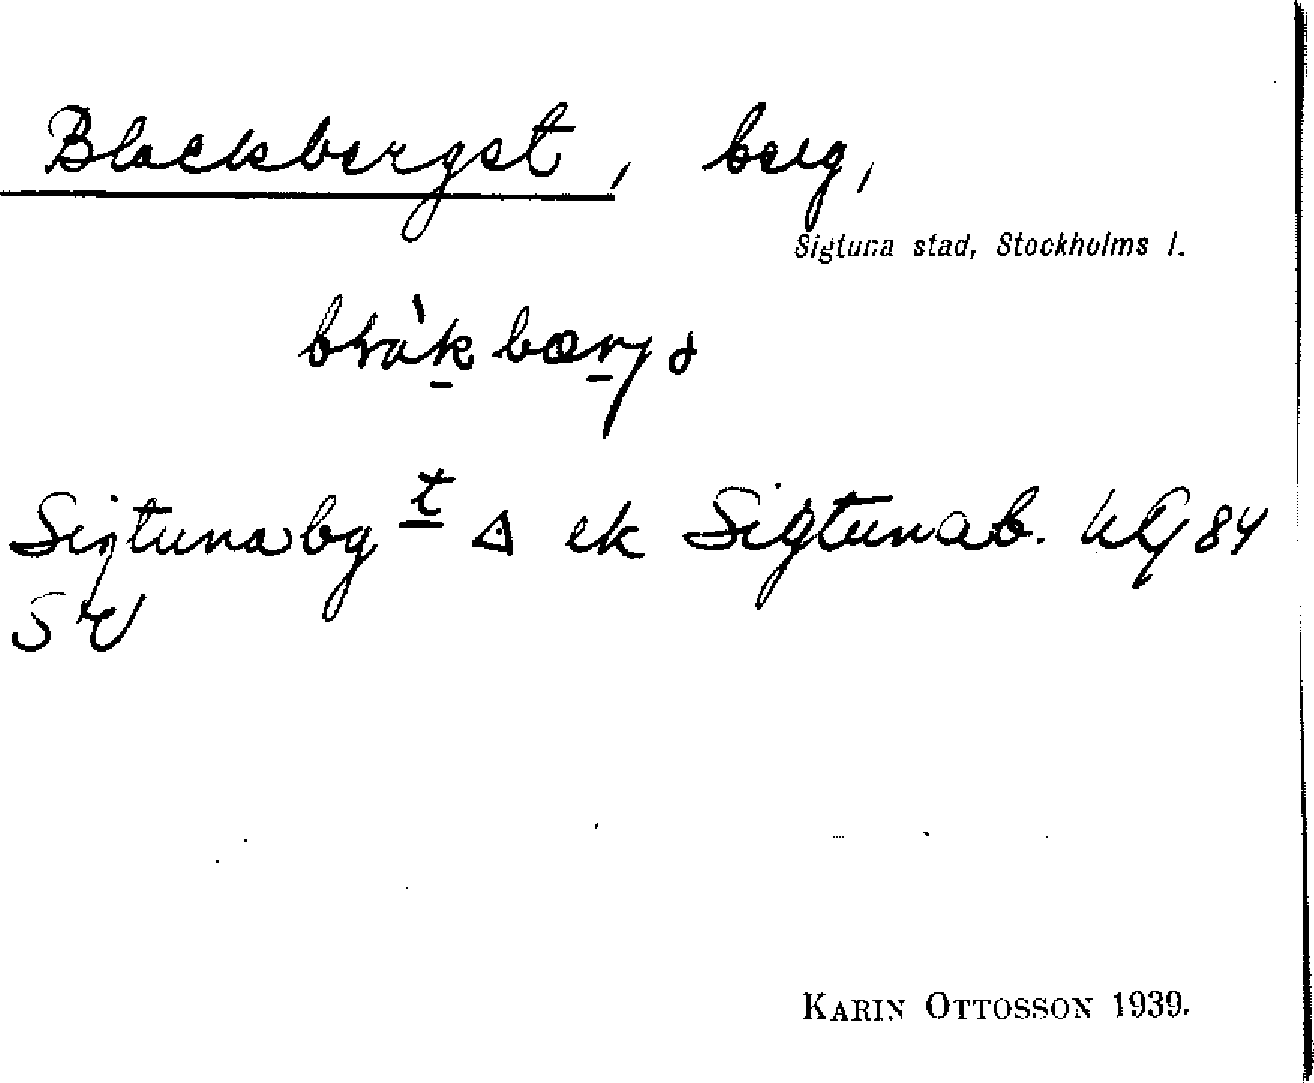 Blackberget, berg,
Sigtuna stad, Stockholms l.
Sigtunabg t Δ ek Sigtunab. UG 84
SV
KARIN OTTOSSON 1939.